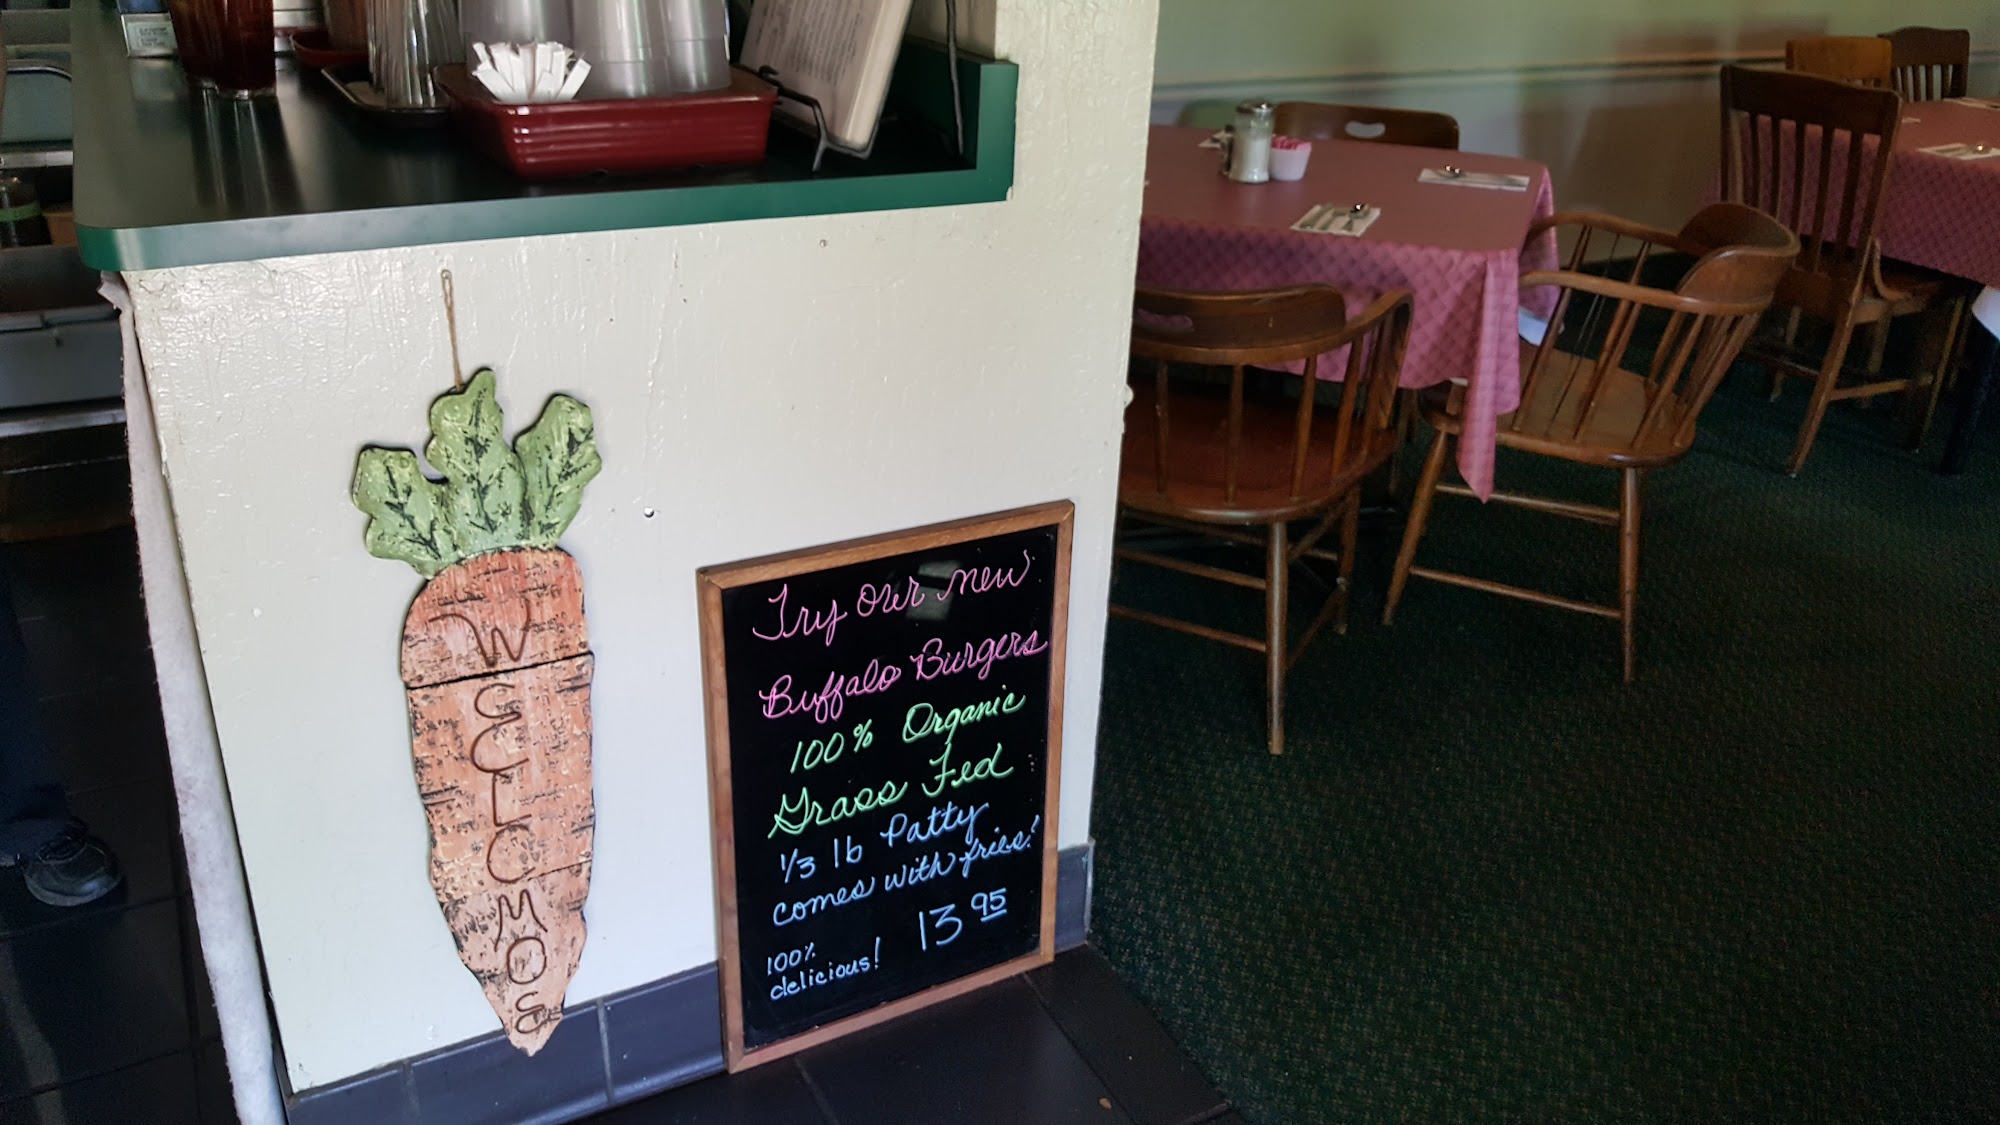 WELCOME
Try our new
Buffalo Burgers
100% Organic
Grass Fed
1/3 lb Patty
comes with fries!
13 95
100%
delicious!